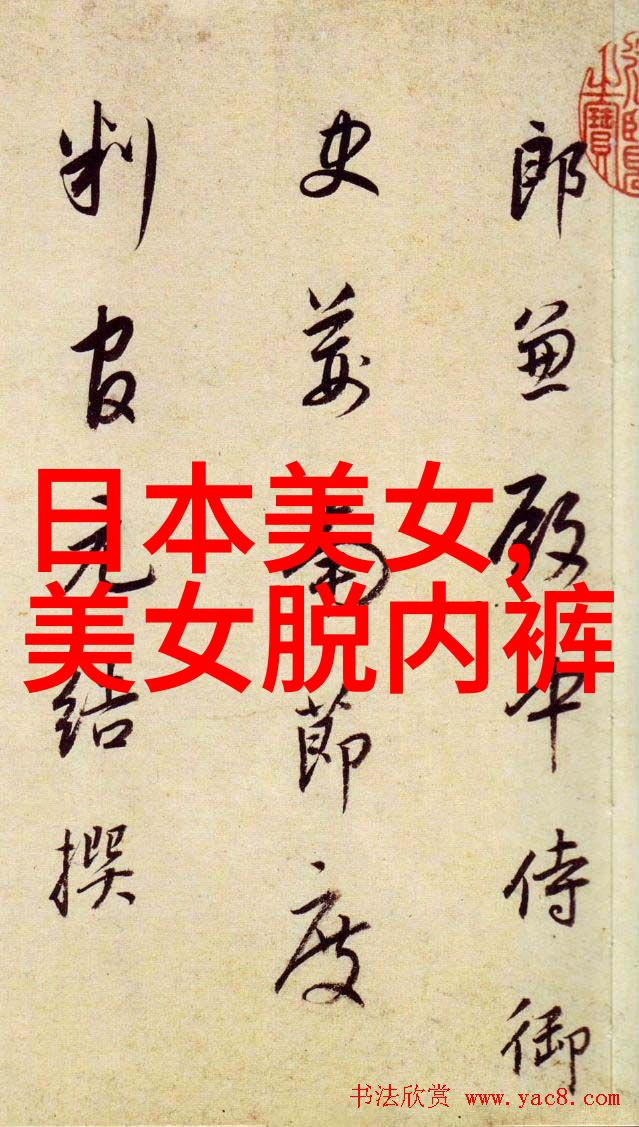 郎兼殿中侍御
史荊南節度
判官元結撰
日本美女,
美女脱内裤
书法欣赏 www.yac8.com